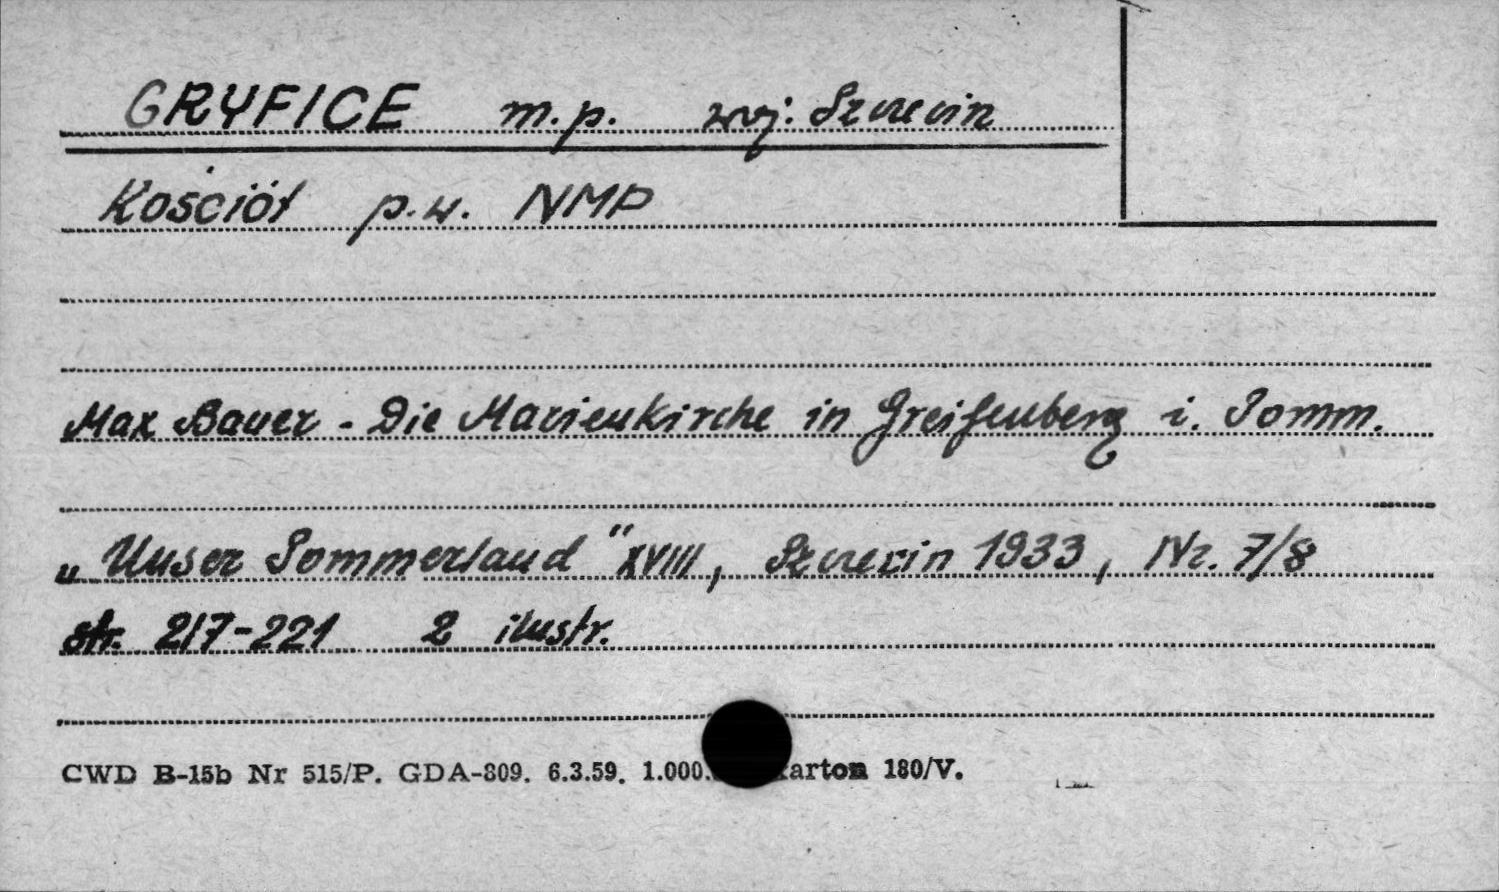 GRYFICE m.p. woj. Szczecin
Kościół p.w. NMP
Max Bauer - Die Marienkirche in Greifenberg i. Pomm.
„Unser Pommerland" XVIII, Szczecin 1933, Nr. 7/8
str. 217-221 2 ilustr.
CWD B-15b Nr 515/P. GDA-809. 6.3.59. 1.000. karton 180/V.